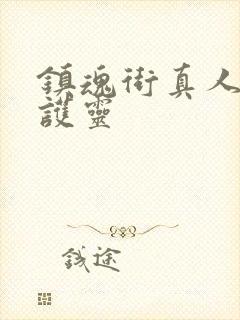 鎮魂街真人
護靈
錢途